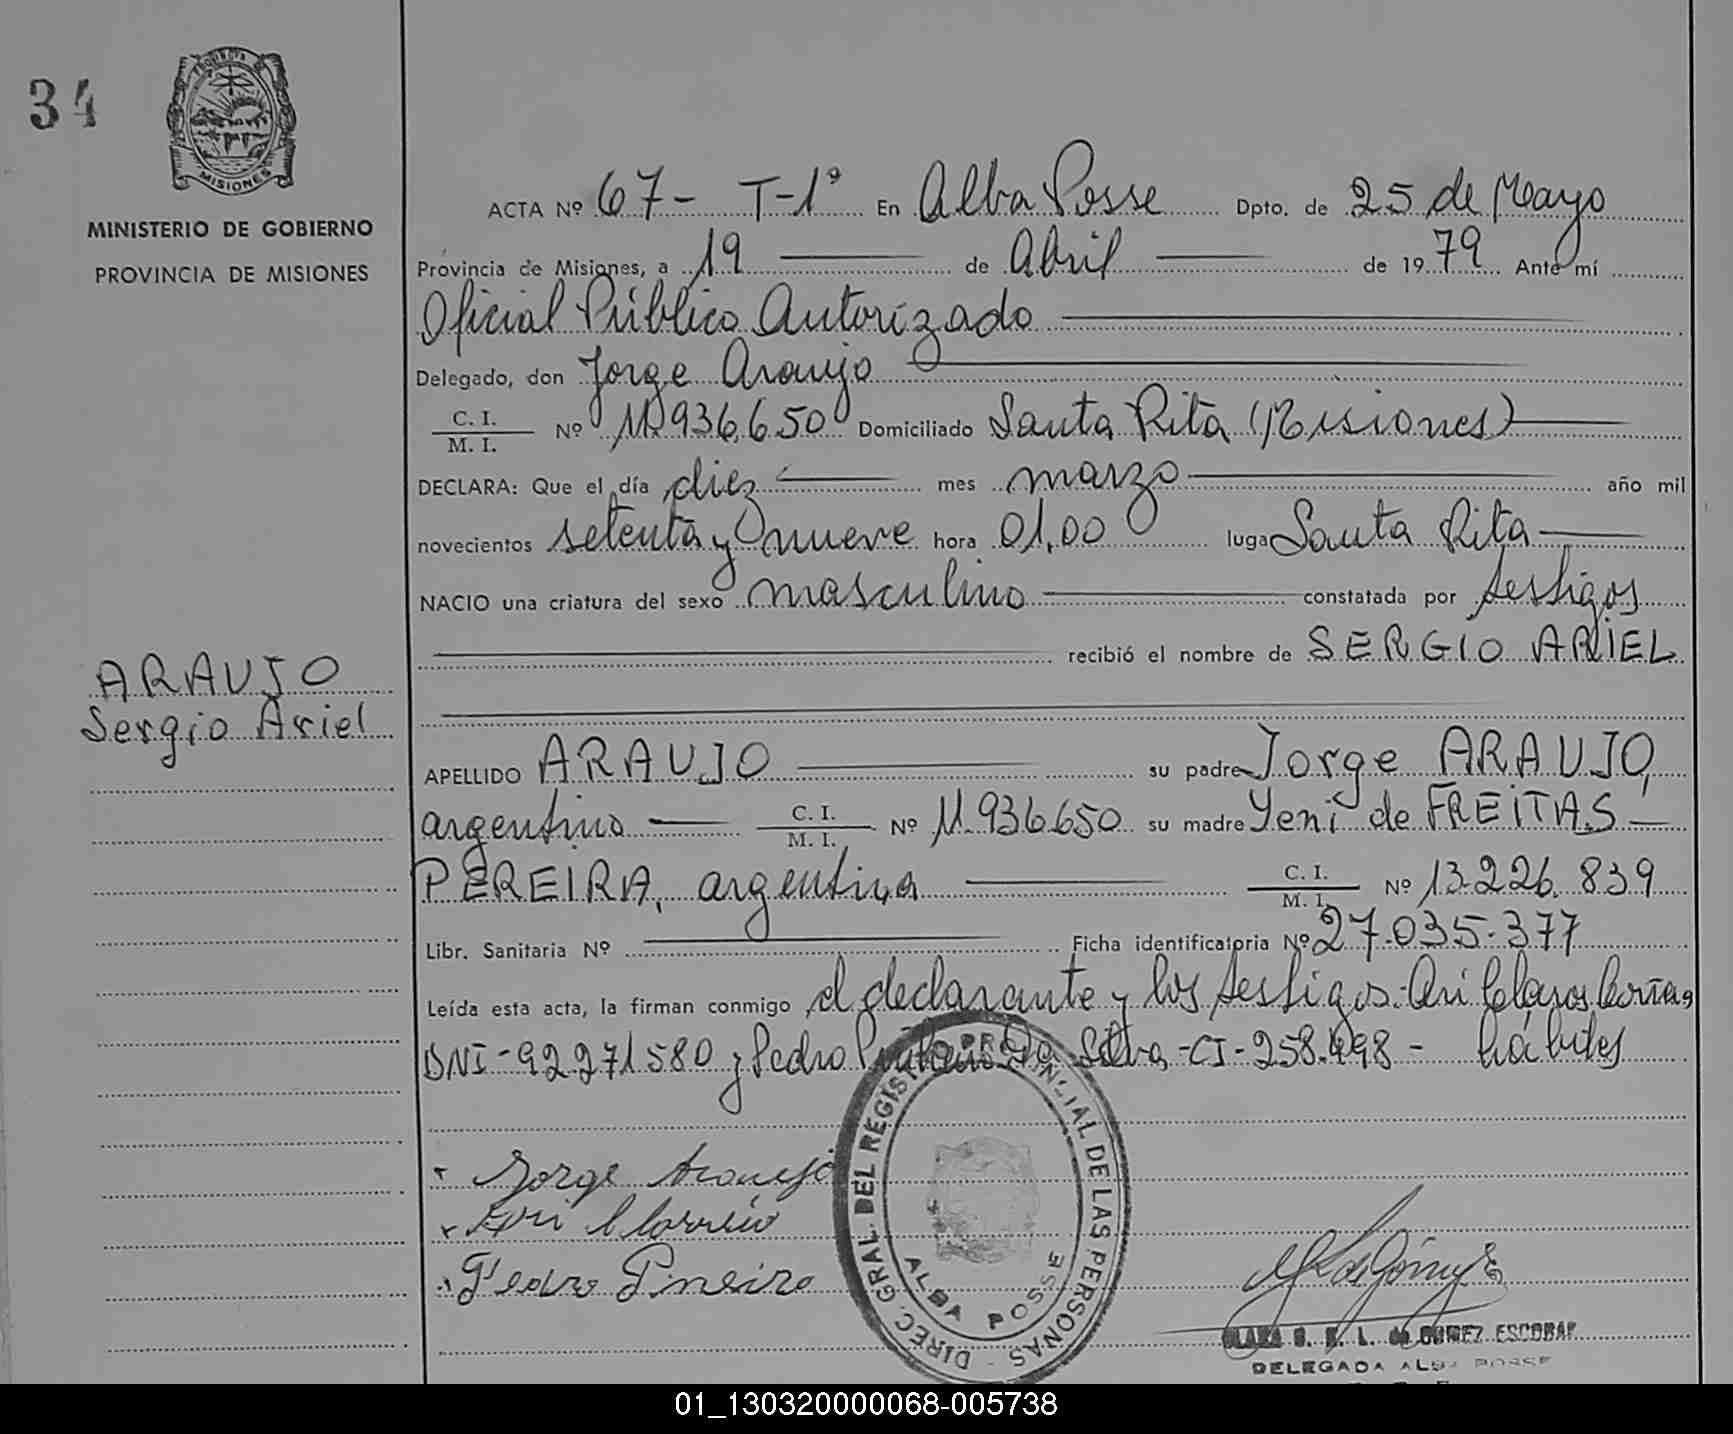 34
PROVINCIA DE
MISIONES
MINISTERIO DE GOBIERNO
PROVINCIA DE MISIONES
ARAUJO
Sergio Ariel
ACTA Nº 67- T-1º En Alba Posse Dpto. de 25 de Mayo
Provincia de Misiones, a 19 de Abril de 1979 Ante mí
Oficial Público Autorizado
Delegado, don Jorge Araujo
C. I.
M. I. Nº 11.936.650 Domiciliado Santa Rita (Misiones)
DECLARA: Que el día diez mes marzo año mil
novecientos setenta y nueve hora 01,00 luga Santa Rita
NACIO una criatura del sexo masculino constatada por testigos
recibió el nombre de SERGIO ARIEL
APELLIDO ARAUJO su padre Jorge ARAUJO,
argentino C. I.
M. I. Nº 11.936.650 su madre Yeni de FREITAS
PEREIRA, argentina C. I.
M. I. Nº 13.226.839
Libr. Sanitaria Nº Ficha identificatoria Nº 27.035.377
Leída esta acta, la firman conmigo el declarante y los testigos: Ari
DNI-92.271580 y Pedro Da Silva-CI-258.498- hábiles
Jorge Araujo
Ari
Pedro
DIREC. GRAL. DEL REGISTRO PROVINCIAL DE LAS PERSONAS -
ALBA POSSE
de GOMEZ ESCOBAR
DELEGADA ALBA POSSE
01_130320000068-005738